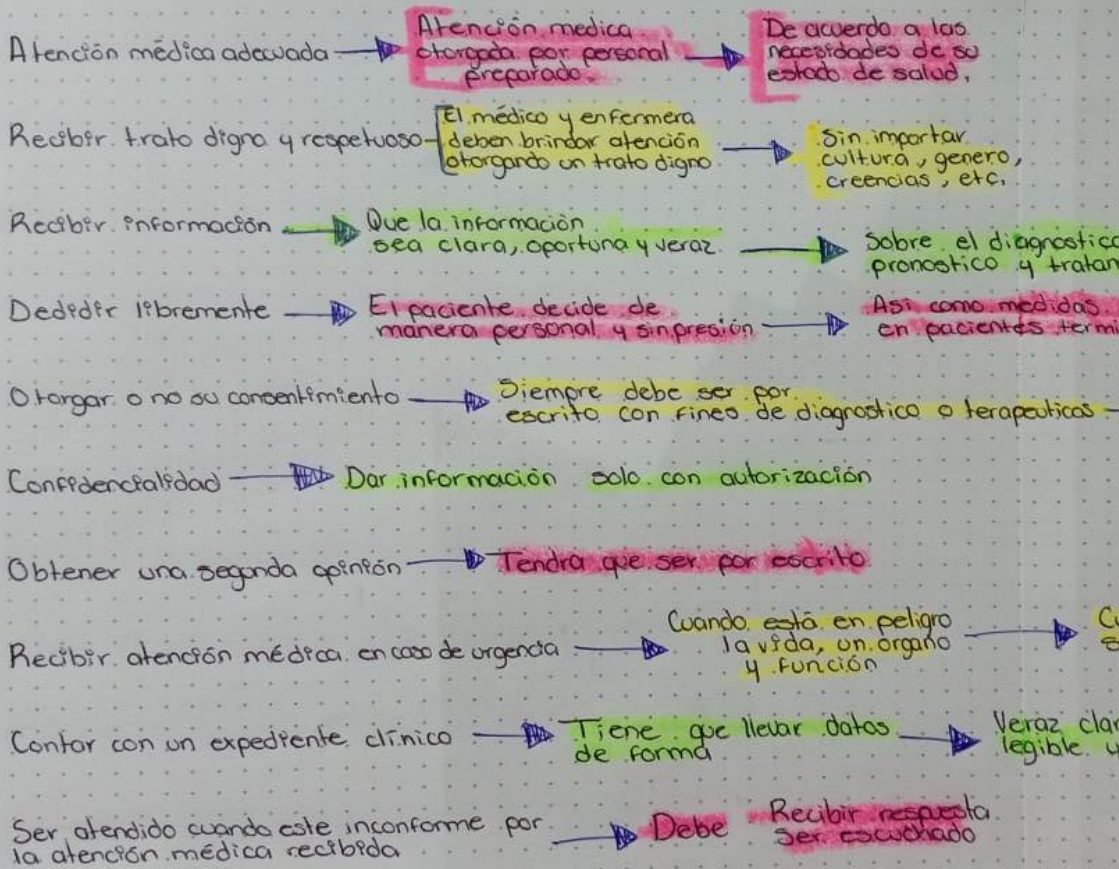 Atención médica adecuada
Atención medica
otorgada por personal
preparado.
De acuerdo a las
necesidades de su
estado de salud.
Recibir trato digno y respetuoso
El médico y enfermera
deben brindar atención
otorgando un trato digno
Sin importar
cultura, genero,
creencias, etc.
Recibir información
Que la información
sea clara, oportuna y veraz
Sobre el diagnostico
pronostico y
Dedidir libremente
El paciente decide de
manera personal y sin presión
Asi como medidas
en pacientes
Otorgar o no su consentimiento
Siempre debe ser por
escrito con fines de diagnostico o terapeuticas
Confidencialidad
Dar información solo con autorización
Obtener una segunda opinión
Tendra que ser por escrito
Recibir atención médica en caso de urgencia
Cuando está en peligro
la vida, un organo
y función
Contar con un expediente clínico
Tiene que llevar datos
de forma
Veraz
legible y
Ser atendido cuando este inconforme por
la atención médica recibida
Debe
Recibir respuesta
Ser escuchado